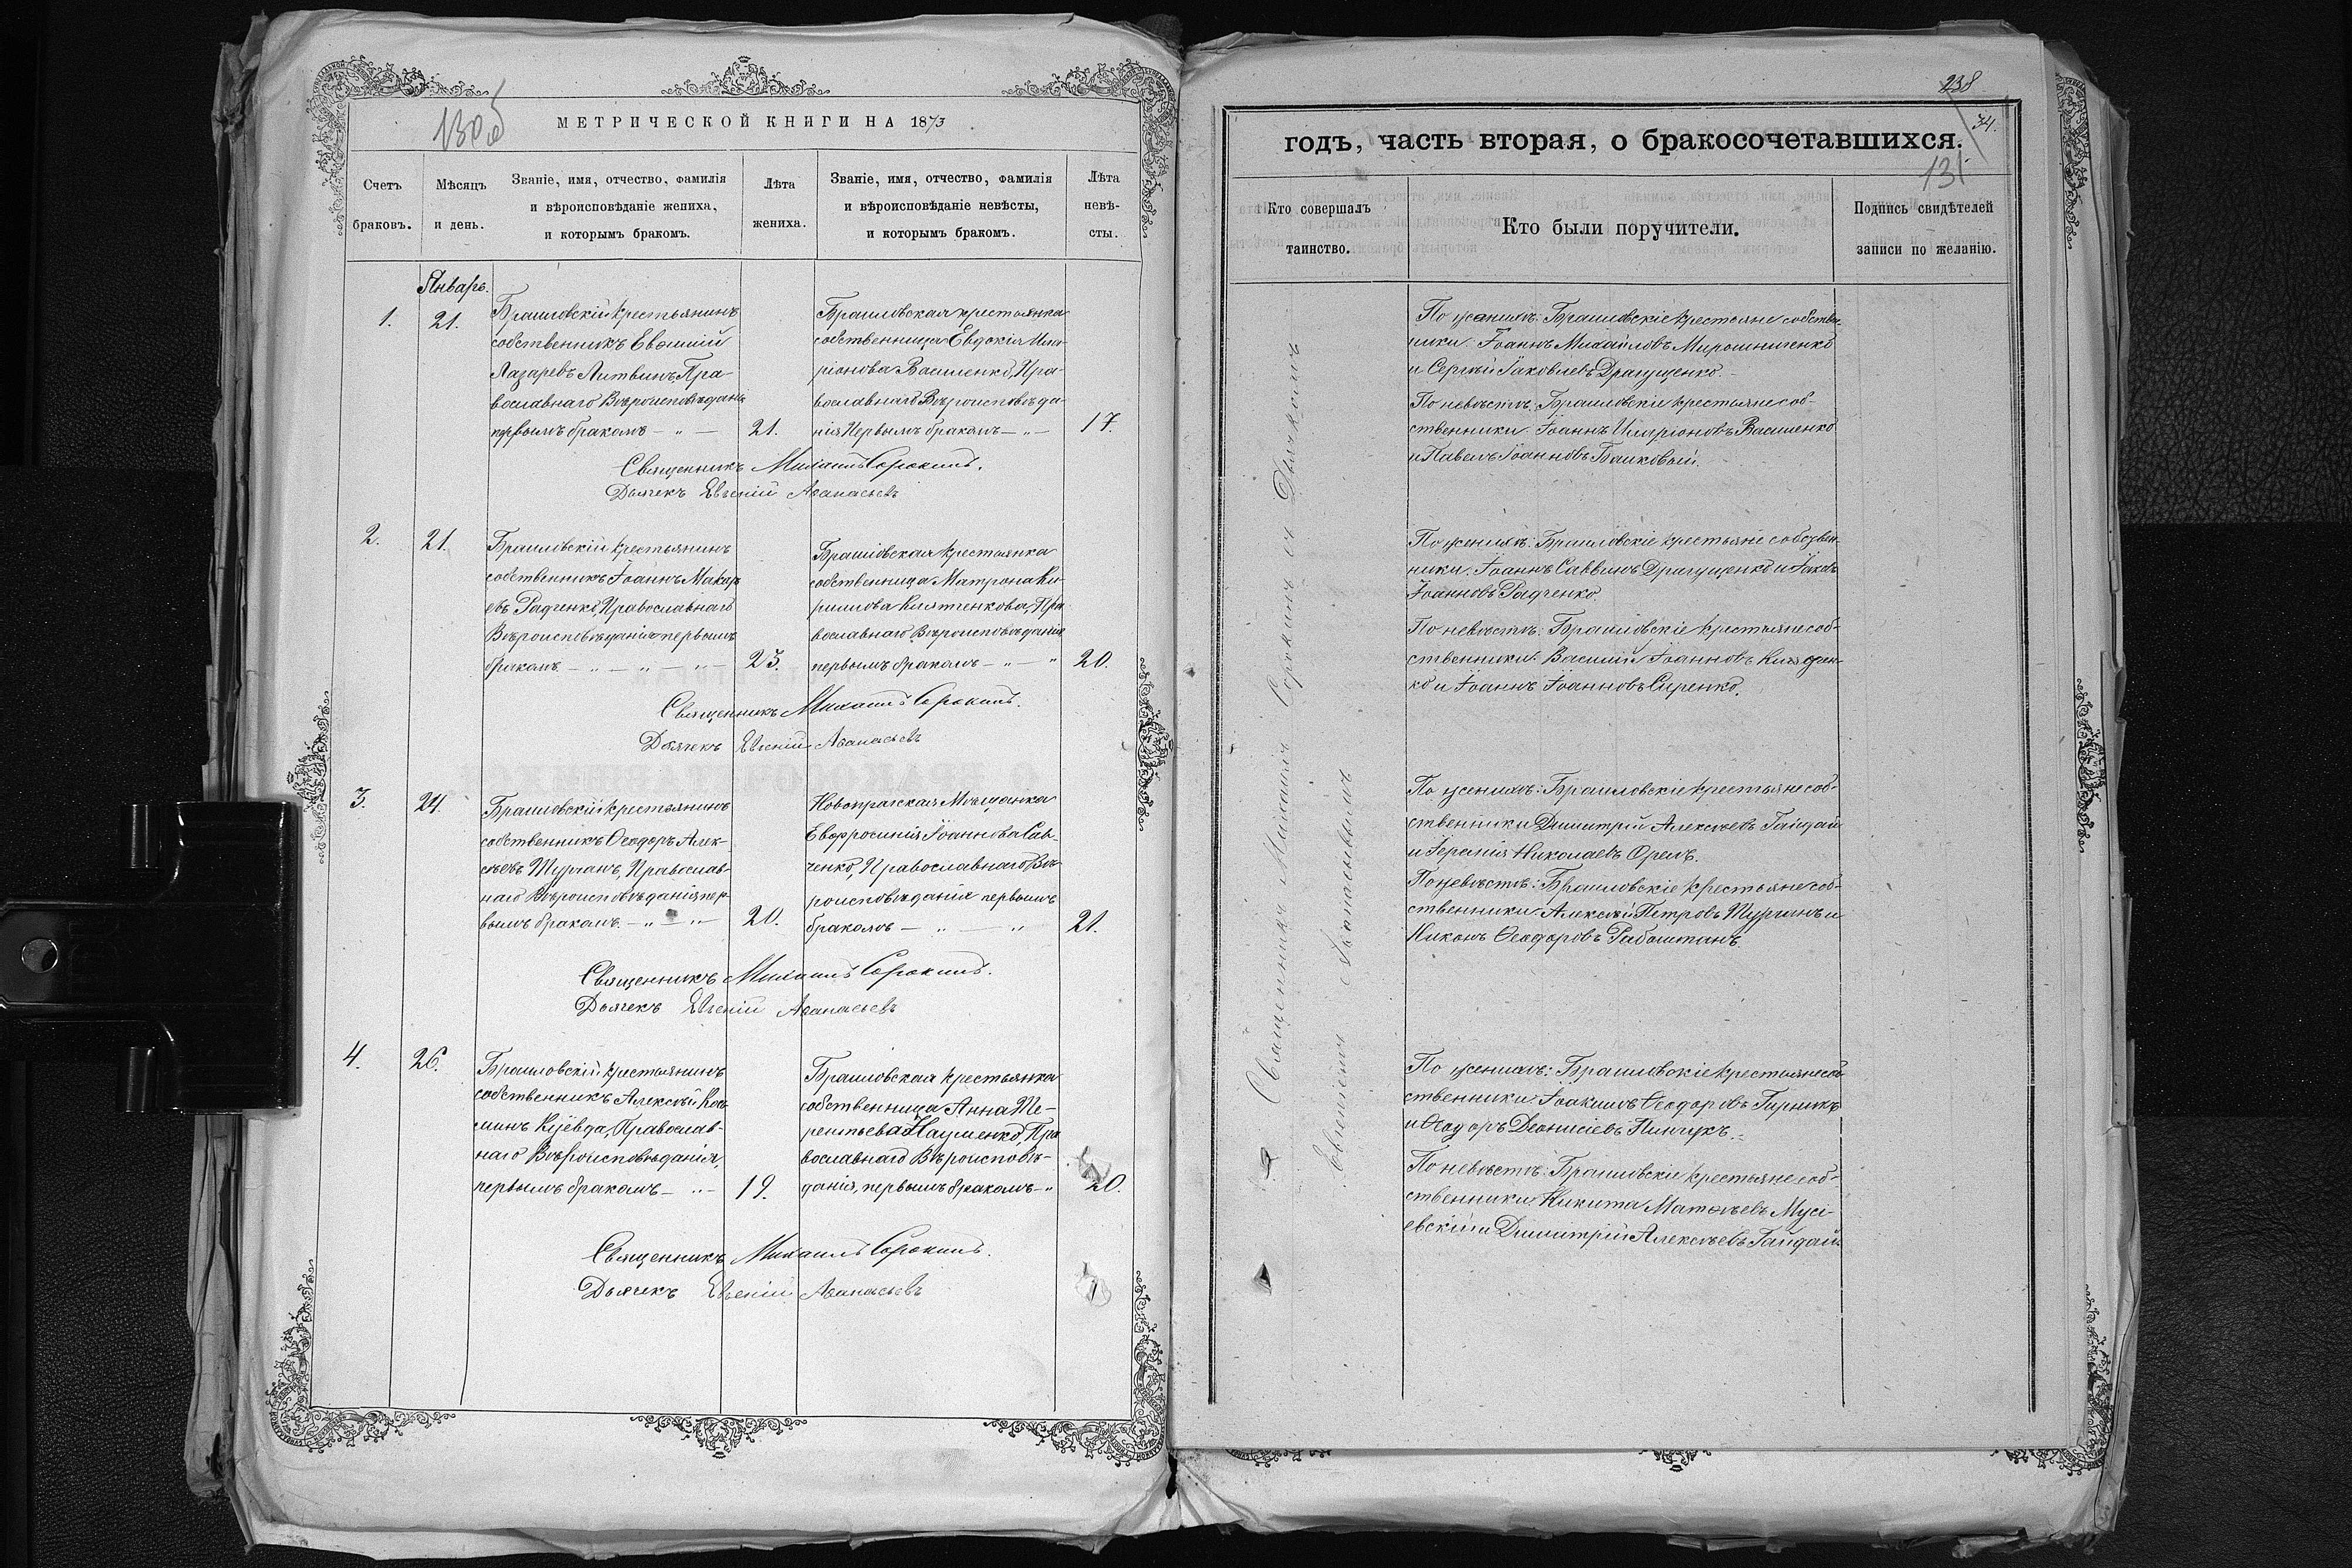 130об
МЕТРИЧЕСКОЙ КНИГИ НА 1873
Счетъ браковъ.
Мѣсяцъ и день.
Званіе, имя, отчество, фамилія и вѣроисповѣданіе жениха, и которымъ бракомъ.
Лѣта жениха.
Званіе, имя, отчество, фамилія и вѣроисповѣданіе невѣсты, и которымъ бракомъ.
Лѣта невѣ-
сты.
Январь.
1.
21.
Браиловскій крестьянинъ
собственникъ Евѳимій
Лазаревъ Литвинъ, Пра-
вославнаго Вѣроисповѣдан.
первымъ бракомъ — „ —
21.
Браиловская крестьянка
собственница Евдокія Ила-
ріонова Василенко, Пра-
вославнаго Вѣроисповѣда-
нія Первымъ бракомъ — „ —
17.
Священникъ Михаилъ Сорокинъ.
Дьячекъ Евгеній Аѳанасьевъ
2.
21.
Браиловскій крестьянинъ
собственникъ Іоаннъ Макар
евъ Радченко, Православнаго
Вѣроисповѣданія первымъ
бракомъ — „ — „ — „ —
23.
Браиловская крестьянка
собственница Матрона Ки-
рилова Княтченкова, Пра
вославнаго Вѣроисповѣданія
первымъ бракомъ — „ — „
20.
Священникъ Михаилъ Сорокинъ.
Дьячекъ Евгеній Аѳанасьевъ
3.
24
Браиловскій крестьянинъ
собственникъ Ѳеодоръ Алек-
сѣевъ Турганъ, Православ-
наго Вѣроисповѣданія пер-
вымъ бракомъ. — „ — „ —
20.
Новопражская Мѣщанка
Евфросинія Іоаннова Сав-
ченко, Православнаго Вѣ-
роисповѣданія первымъ
бракомъ — „ — „
21.
Священникъ Михаилъ Сорокинъ.
Дьячекъ Евгеній Аѳанасьевъ
4.
26.
Браиловскій крестьянинъ
собственникъ Алексѣй Коз
минъ Куёвда, Православ-
наго Вѣроисповѣданія,
первымъ бракомъ — „ —
19.
Браиловская крестьянка
собственница Анна Те-
рентьева Науменко, Пра
вославнаго Вѣроисповѣ-
данія, первымъ бракомъ — „
20.
Священникъ Михаилъ Сорокинъ.
Дьячекъ Евгеній Аѳанасьевъ
238
34.
131
годъ, часть вторая, о бракосочетавшихся.
Кто совершалъ таинство.
Кто были поручители.
Подпись свидѣтелей записи по желанію.
Священникъ Михаилъ Сорокинъ съ Дьячкомъ
Евгеніемъ Аѳанасьевымъ
По женихѣ: Браиловскіе крестьяне собствен-
ники. Іоаннъ Михайловъ Мирошниченко
и Сергѣй Іаковлевъ Драгущенко.
По невѣстѣ: Браиловскіе крестьяне соб-
ственники. Іоаннъ Иларіоновъ Василенко
и Павелъ Іоанновъ Башковый.
По женихѣ: Браиловскіе крестьяне собствен
ники. Іоаннъ Саввинъ Драгущенко и Іаковъ
Іоанновъ Радченко.
По невѣстѣ: Браиловскіе крестьяне соб-
ственники: Василій Іоанновъ
и Іоаннъ Іоанновъ Сиренко.
По женихѣ: Браиловскіе крестьяне соб-
ственники Димитрій Алексѣевъ Гайдай
и Іеремія Николаевъ Орелъ.
По невѣстѣ: Браиловскіе крестьяне соб-
ственники. Алексѣй Петровъ Турганъ и
Никонъ Ѳеодоровъ Рабоштанъ.
По женихѣ: Браиловскіе крестьяне соб
ственники. Іоакимъ Ѳеодоровъ Гирникъ
и Ѳеодоръ Діонисіевъ Пинчукъ.
По невѣстѣ: Браиловскіе крестьяне соб-
ственники. Никита Матѳѣевъ Мусі-
евскій и Димитрій Алексѣевъ Гайдай.